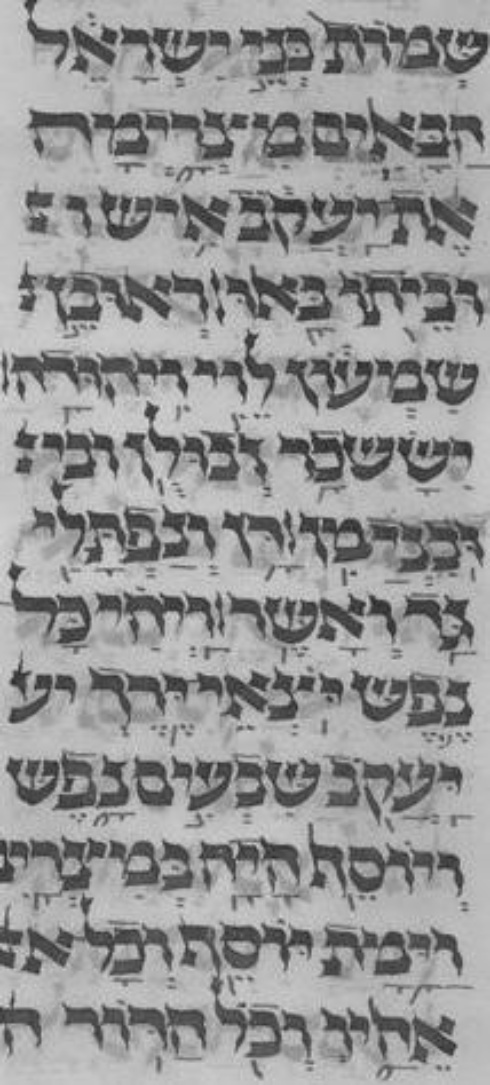 שמות בני ישראל
הבאים מצרימה
את יעקב איש ו
וביתו באו׃ ראובן
שמעון לוי ויהודה׃
יששכר זבולן ובי
ובנימן׃ דן ונפתלי
גד ואשר׃ ויהי כל
נפש יצאי ירך יע
יעקב שבעים נפש
ויוסף היה במצרים
וימת יוסף וכל אח
אחיו וכל הדור ה